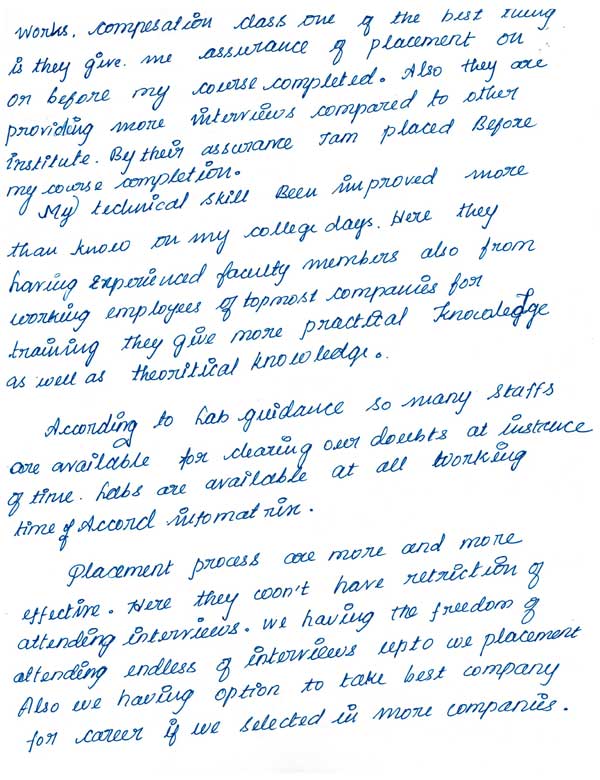 works. compesation class one of the best thing
is they give. me assurance of placement on
or before my course completed. Also they are
providing more interviews compared to other
institute. By their assurance I am placed Before
my course completion.
My technical skill Been improved more
than know on my college days. Here they
having Experienced faculty members also from
working employees of topmost companies for
training they give more practical knowledge
as well as theoritical knowledge.
According to Lab guidance so many staffs
are available for clearing our doubts at instance
of time. Labs are available at all working
time of Accord infomatrix.
Placement process are more and more
effective. Here they won't have retriction of
attending interviews. we having the freedom of
attending endless of interviews upto we placement
Also we having option to take best company
for career if we selected in more companies.